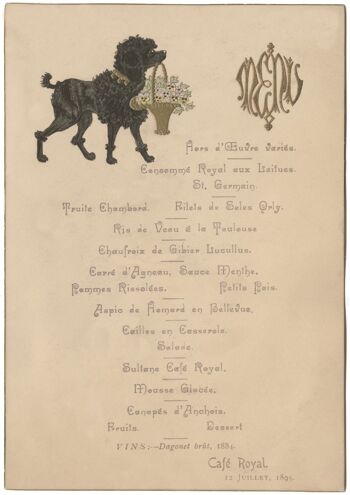 MENU
Hors d'Œuvre variés.
Consommé Royal aux Laitues.
St. Germain.
Truite Chambord. Filets de Soles Orly.
Ris de Veau à la Toulouse
Chaufroix de Gibier Lucullus.
Carré d'Agneau, Sauce Menthe.
Pommes Rissolées. Petits Pois.
Aspic de Homard en Bellevue.
Cailles en Casserole.
Salade.
Sultane Café Royal.
Mousse Glacée.
Canapés d'Anchois.
Fruits. Dessert
VINS:—Dagonet brût, 1884.
Café Royal.
12 JUILLET,